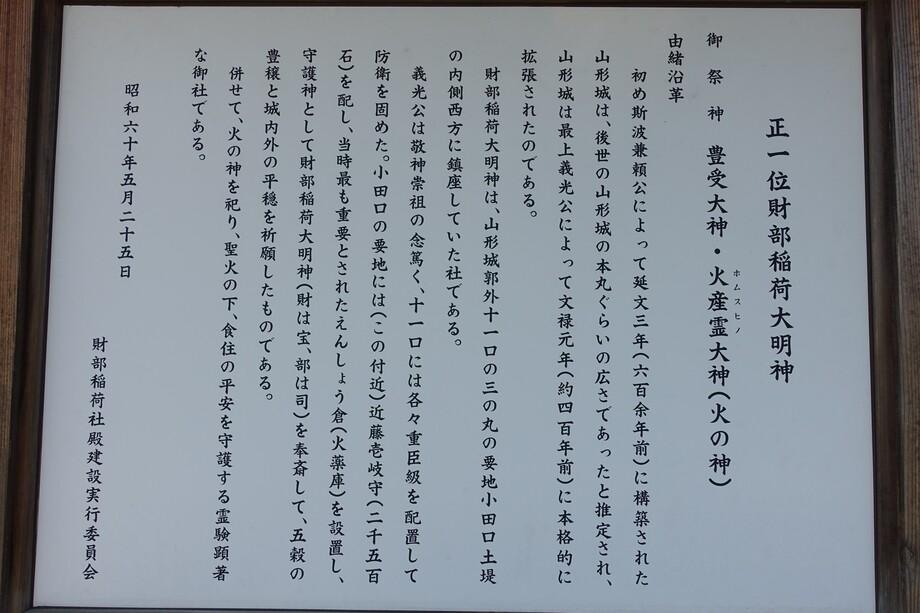 正一位財部稲荷大明神
御祭神 豊受大神・火産霊大神(火の神)
ホムスヒノ
由緒沿革
初め斯波兼頼公によって延文三年(六百余年前)に構築された
山形城は、後世の山形城の本丸ぐらいの広さであったと推定され、
山形城は最上義光公によって文禄元年(約四百年前)に本格的に
拡張されたのである。
財部稲荷大明神は、山形城郭外十一口の三の丸の要地小田口土堤
の内側西方に鎮座していた社である。
義光公は敬神崇祖の念篤く、十一口には各々重臣級を配置して
防衛を固めた。小田口の要地には(この付近)近藤壱岐守(二千五百
石)を配し、当時最も重要とされたえんしょう倉(火薬庫)を設置し、
守護神として財部稲荷大明神(財は宝、部は司)を奉斎して、五穀の
豊穣と城内外の平穏を祈願したものである。
併せて、火の神を祀り、聖火の下、食住の平安を守護する霊験顕著
な御社である。
昭和六十年五月二十五日
財部稲荷社殿建設実行委員会